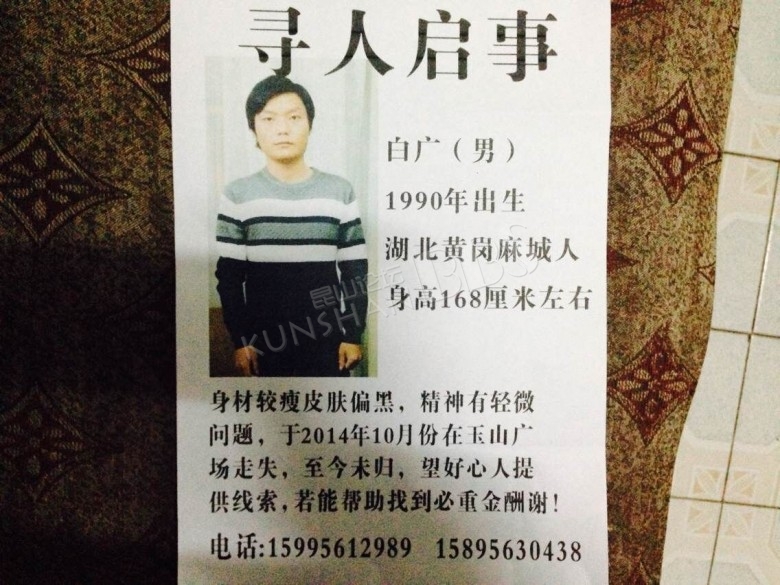 寻人启事
白广（男）
1990年出生
湖北黄岗麻城人
身高168厘米左右
昆山论坛BBS
KUNSHAN
身材较瘦皮肤偏黑，精神有轻微
问题，于2014年10月份在玉山广
场走失，至今未归，望好心人提
供线索，若能帮助找到必重金酬谢！
电话:15995612989 15895630438